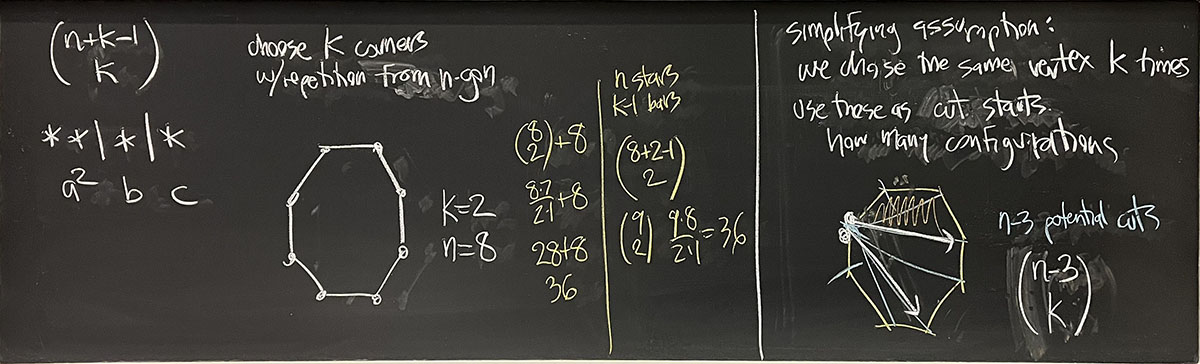 (n+k-1
k)
**|*|*
a² b c
choose k corners
w/repetition from n-gon
k=2
n=8
(8
2)+8
8·7
2·1 +8
28+8
36
n stars
k-1 bars
(8+2-1
2)
(9
2) 9·8
2·1 =36
simplifying assumption:
we chose the same vertex k times
use these as cut starts.
how many configurations
n-3 potential cuts
(n-3
k)